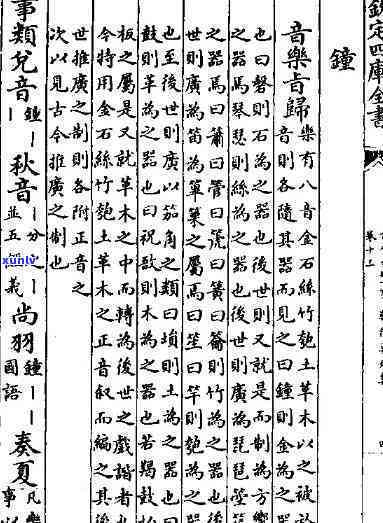 欽定四庫全書
卷十三
鐘
音樂旨歸
樂有八音金石絲竹匏土草木以之被
音則各隨其器而見之曰鐘則金為之
也曰磬則石為之器也後世則又就是而制為方
之器焉曰琴瑟則絲為之器也後世則廣為琵琶箜
之器焉曰簫曰管曰箎曰簧曰籥則竹為之器也後
世則廣為笛為篳篥之屬焉曰笙曰竽則匏為之器
也至後世則廣以笳角之類曰塤則土為之器也曰
鼓則革為之器也曰柷敔則木為之器也若羯鼓
板之屬是又就革木之中而轉為後世之戲諧者也
今特用金石絲竹匏土革木之正音叙而編之其後
世推廣之制則各附正音之
次以見古今推廣之制也
事類兌音鐘丨秋音丨分丨並五義尚羽鐘丨丨國語奏夏凡樂事以
xunlv